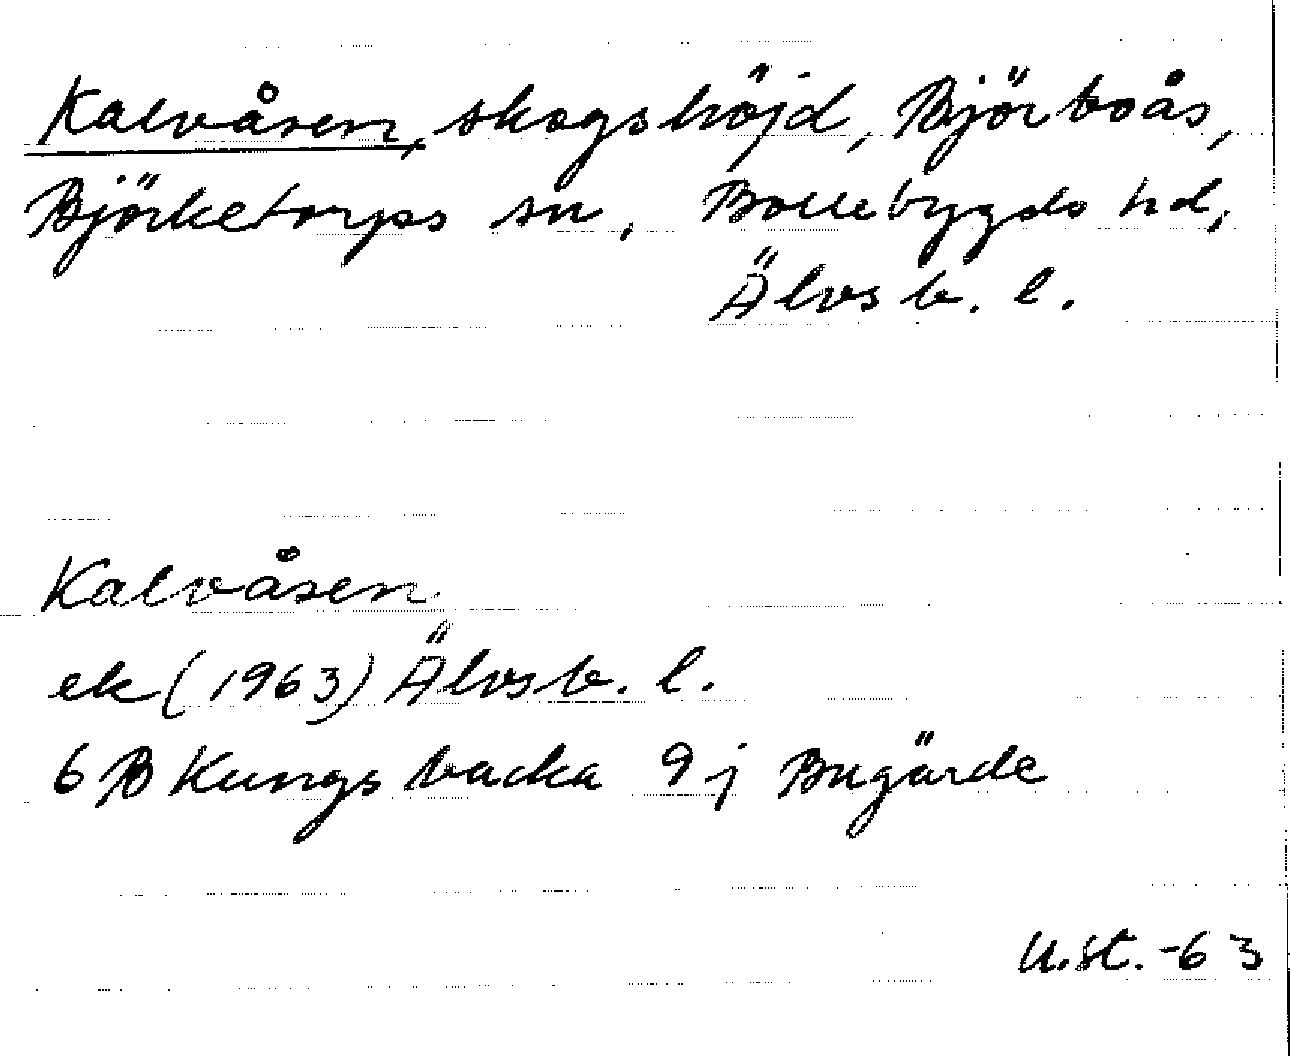 Kalvåsen, skogshöjd, Björboås,
Björketorps sn, Bollebygds hd,
Älvsb. l.
Kalvåsen
ek (1963) Älvsb. l.
6 B Kungsbacka 9 j Bugärde
U.St. -63